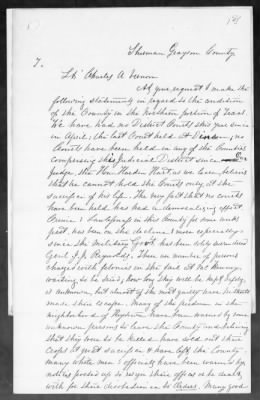 Sherman Grayson County
T.
Lt Charles A Vernon
At your request I make the
following statements in regard to the condition
of the County in the Northern portion of Texas
We have had no District Courts this year since
in April, the last Court held at no
Courts have been held in any of the Counties
composing this Judicial District since
Judge, the Hon Hardin Hart as we learn, believes
that he cannot hold the Courts only, at the
sacrifice of his life. The very fact that no Courts
have been held has had a demoralizing effect
Crime & Lawlessness in this County for some weeks
past, has been on the decline & more especially
since the Military Govt has been
Genl. J. J. Reynolds. There are number of persons
charged with felonies in the Jail at McKinney
waiting to be tried, how long they will be kept safely
is unknown, but almost all the most guilty ones in
made their escape. Many of the freedmen in the
neighborhood of have been warned by some
unknown persons to leave the County
that they were to be killed have sold out their
Crops at great sacrifice & have left the County
many white men & officials have been warned by
notices posted up to resign their offices or be dealt
with for their disobedience to Orders. Many good